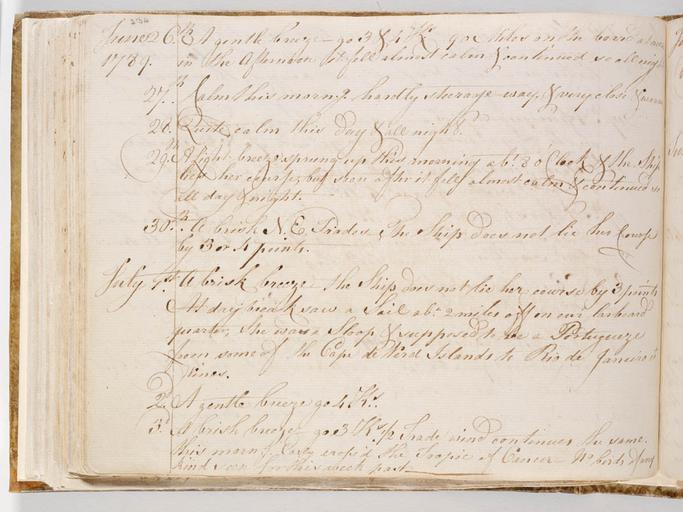 236
June 26th A gentle breeze — go 3 & 4 Ks
1789. in the Afternoon it fell almost calm & continued so all night
27. Calm this morng. hardly steerage way, & very close &
28. Quite calm this day & all night.
29th A light breeze sprung up this morning abt. 8 o Clock & the Ship
her course, but soon after it fell almost calm & continued so
all day & night.
30th A brisk N.E Trades, the Ship does not lie her Course
by 3 or 4 points.
July 1st A brisk breeze the Ship does not lie her course by 3 points
At day break saw a Sail abt. 2 miles off on our larboard
quarter, She was a Sloop & supposed to be a Portugueze
from some of the Cape de Verd Islands to Rio de Janeiro
2. A gentle breeze go 4 Ks.
3. A brisk breeze go 3 Ks. Trade wind continues the same.
this morng. cross'd the Tropic of Cancer — No birds of any
kind seen for this week past.